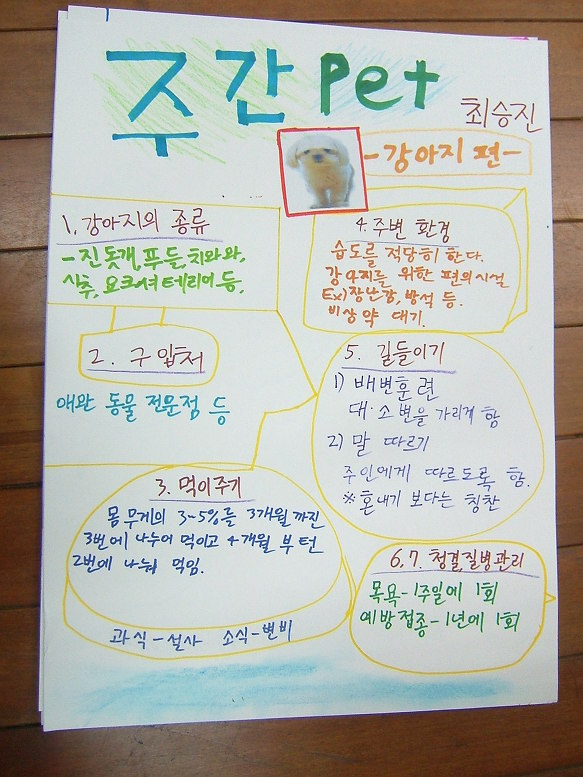 주간 Pet
최승진
-강아지 편-
1. 강아지의 종류
- 진돗개, 푸들, 치와와,
시츄, 요크셔테리어 등.
2. 구입처
애완 동물 전문점 등
3. 먹이주기
몸무게의 3~5%를 3개월 까진
3번에 나누어 먹이고 4개월 부턴
2번에 나눠 먹임.
과식-설사 소식-변비
4. 주변 환경
습도를 적당히 한다.
강아지를 위한 편의시설
Ex)장난감, 방석 등.
비상약 대기.
5. 길들이기
1) 배변훈련
대·소변을 가리게 함
2) 말 따르기
주인에게 따르도록 함.
※혼내기 보다는 칭찬
6,7. 청결질병관리
목욕-1주일에 1회
예방접종-1년에 1회